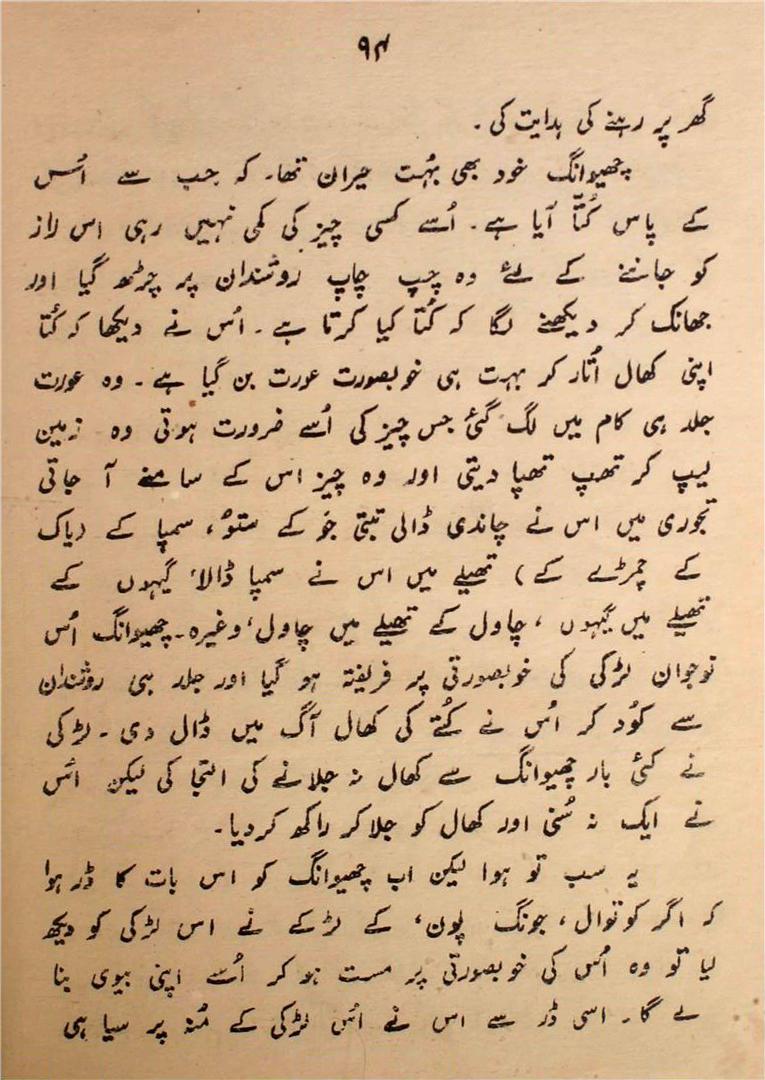 ۹۴
گھر پر رہنے کی ہدایت کی۔
چھیوانگ خود بھی بُہت حیران تھا۔ کہ جب سے اُس
کے پاس کُتّا آیا ہے۔ اُسے کسی چیز کی کمی نہیں رہی اس راز
کو جاننے کے لئے وہ چپ چاپ روشندان پر چڑھ گیا اور
جھانک کر دیکھنے لگا کہ کُتا کیا کرتا ہے۔ اُس نے دیکھا کہ کُتا
اپنی کھال اُتار کر بہت ہی خوبصورت عورت بن گیا ہے۔ وہ عورت
جلد ہی کام میں لگ گئی جس چیز کی اُسے ضرورت ہوتی وہ زمین
لیپ کر تھپ تھپا دیتی اور وہ چیز اس کے سامنے آ جاتی
تجوری میں اس نے چاندی ڈالی تبتی جَو کے ستوُ، سمپا کے (یاک
کے چمڑے کے) تھیلے میں اس نے سمپا ڈالا، گیہوں کے
تھیلے میں گیہوں، چاول کے تھیلے میں چاول، وغیرہ۔ چھیوانگ اُس
نوجوان لڑکی کی خوبصورتی پر فریفتہ ہو گیا اور جلد ہی روشندان
سے کوُد کر اُس نے کُتے کی کھال آگ میں ڈال دی۔ لڑکی
نے کئی بار چھیوانگ سے کھال نہ جلانے کی التجا کی لیکن اُس
نے ایک نہ سُنی اور کھال کو جلا کر راکھ کر دیا۔
یہ سب تو ہوا لیکن اب چھیوانگ کو اس بات کا ڈر ہوا
کہ اگر کوتوال، جونگ پون، کے لڑکے نے اس لڑکی کو دیکھ
لیا تو وہ اُس کی خوبصورتی پر مست ہو کر اُسے اپنی بیوی بنا
لے گا۔ اسی ڈر سے اس نے اُس لڑکی کے مُنہ پر سیاہی